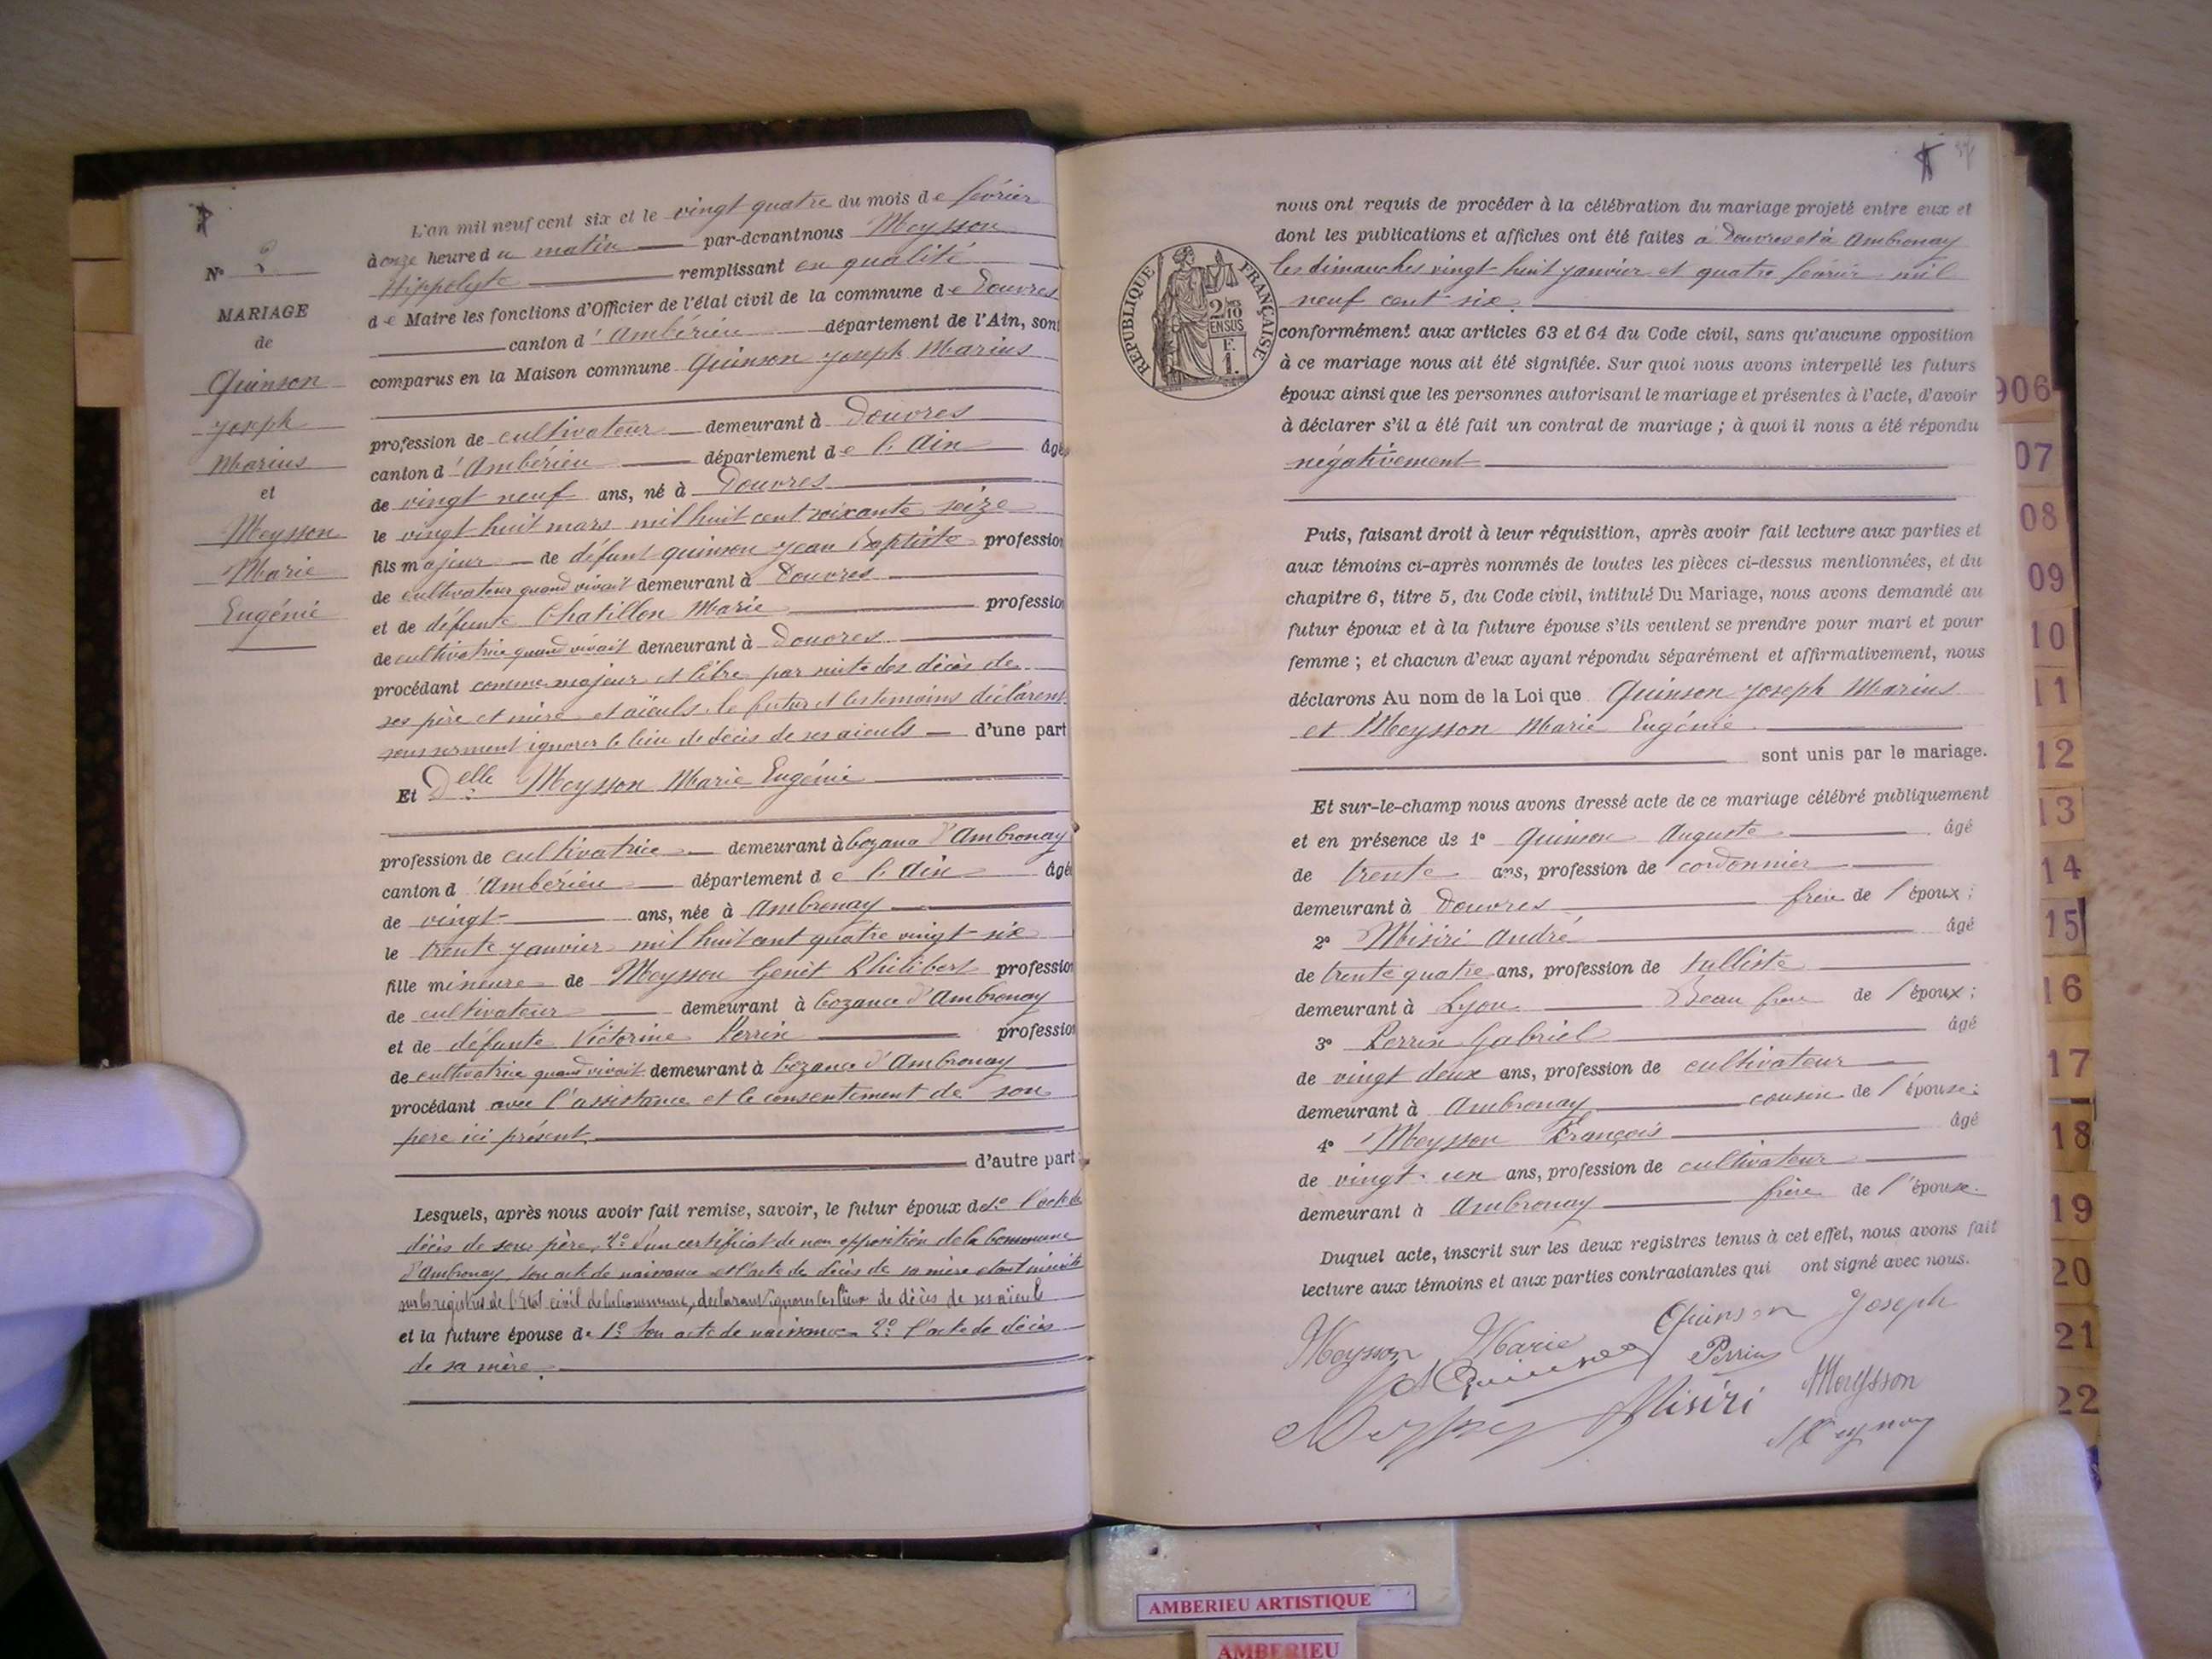 MARIAGE
de
Quinson
Joseph
Marius
et
Meysson
Marie
Eugénie
L'an mil neuf cent six et le vingt quatre du mois de février
à onze heure du matin par-devant nous Meysson
Hippolyte remplissant en qualité
de Maire les fonctions d'Officier de l'état civil de la commune de Douvres
canton d'Ambérieu département de l'Ain, sont
comparus en la Maison commune Quinson Joseph Marius
profession de cultivateur demeurant à Douvres
canton d'Ambérieu département de l'Ain âgé
de vingt neuf ans, né à Douvres
le vingt huit mars mil huit cent soixante seize
fils majeur de défunt quinson Jean Baptiste profession
de cultivateur quand vivait demeurant à Douvres
et de défunte Chatillon Marie profession
de cultivatrice quand vivait demeurant à Douvres
procédant comme majeur et libre par suite des décès de
ses père et mère et aïeuls, le futur et les témoins déclarent
sous serment ignorer le lieu de décès de ses aïeuls d'une part
Et Delle Meysson Marie Eugénie
profession de cultivatrice demeurant à Cozance d'Ambronay
canton d'Ambérieu département de l'Ain âgé
de vingt ans, née à Ambronay
le trente Janvier mil huit cent quatre vingt six
fille mineure de Meysson Genit Philibert profession
de cultivateur demeurant à Cozance d'Ambronay
et de défunte Victorine Perrin profession
de cultivatrice quand vivait demeurant à Cozance d'Ambronay
procédant avec l'assistance et le consentement de son
père ici présent
d'autre part
Lesquels, après nous avoir fait remise, savoir, le futur époux de 1º l'acte de
décès de son père, 2º d'un certificat de non opposition de la Commune
d'Ambronay, son acte de naissance et l'acte de décès de sa mère étant inscrits
sur les registres de l'état civil de la commune, déclarant ignorer les lieux de décès de ses aïeuls
et la future épouse de 1º Son acte de naissance 2º l'acte de décès
de sa mère.
nous ont requis de procéder à la célébration du mariage projeté entre eux et
dont les publications et affiches ont été faites à Douvres et à Ambronay
les dimanches vingt huit Janvier et quatre février mil
neuf cent six
RÉPUBLIQUE FRANÇAISE
2/10
EN SUS
F.
1.
conformément aux articles 63 et 64 du Code civil, sans qu'aucune opposition
à ce mariage nous ait été signifiée. Sur quoi nous avons interpellé les futurs
époux ainsi que les personnes autorisant le mariage et présentes à l'acte, d'avoir
à déclarer s'il a été fait un contrat de mariage ; à quoi il nous a été répondu
négativement
Puis, faisant droit à leur réquisition, après avoir fait lecture aux parties et
aux témoins ci-après nommés de toutes les pièces ci-dessus mentionnées, et du
chapitre 6, titre 5, du Code civil, intitulé Du Mariage, nous avons demandé au
futur époux et à la future épouse s'ils veulent se prendre pour mari et pour
femme ; et chacun d'eux ayant répondu séparément et affirmativement, nous
déclarons Au nom de la Loi que Quinson Joseph Marius
et Meysson Marie Eugénie
sont unis par le mariage.
Et sur-le-champ nous avons dressé acte de ce mariage célébré publiquement
et en présence de 1º Quinson Auguste âgé
de trente ans, profession de cordonnier
demeurant à Douvres frère de l'époux ;
2º Misiri André âgé
de trente quatre ans, profession de tulliste
demeurant à Lyon Beau frère de l'époux ;
3º Perrin Gabriel âgé
de vingt deux ans, profession de cultivateur
demeurant à Ambronay cousin de l'épouse ;
4º Meysson François âgé
de vingt un ans, profession de cultivateur
demeurant à Ambronay frère de l'épouse.
Duquel acte, inscrit sur les deux registres tenus à cet effet, nous avons fait
lecture aux témoins et aux parties contractantes qui ont signé avec nous.
Meysson Marie Quinson Joseph
A Quinson Perrin
Misiri Meysson
906
07
08
09
10
11
12
13
14
15
16
17
18
19
20
21
22
AMBERIEU ARTISTIQUE
AMBERIEU